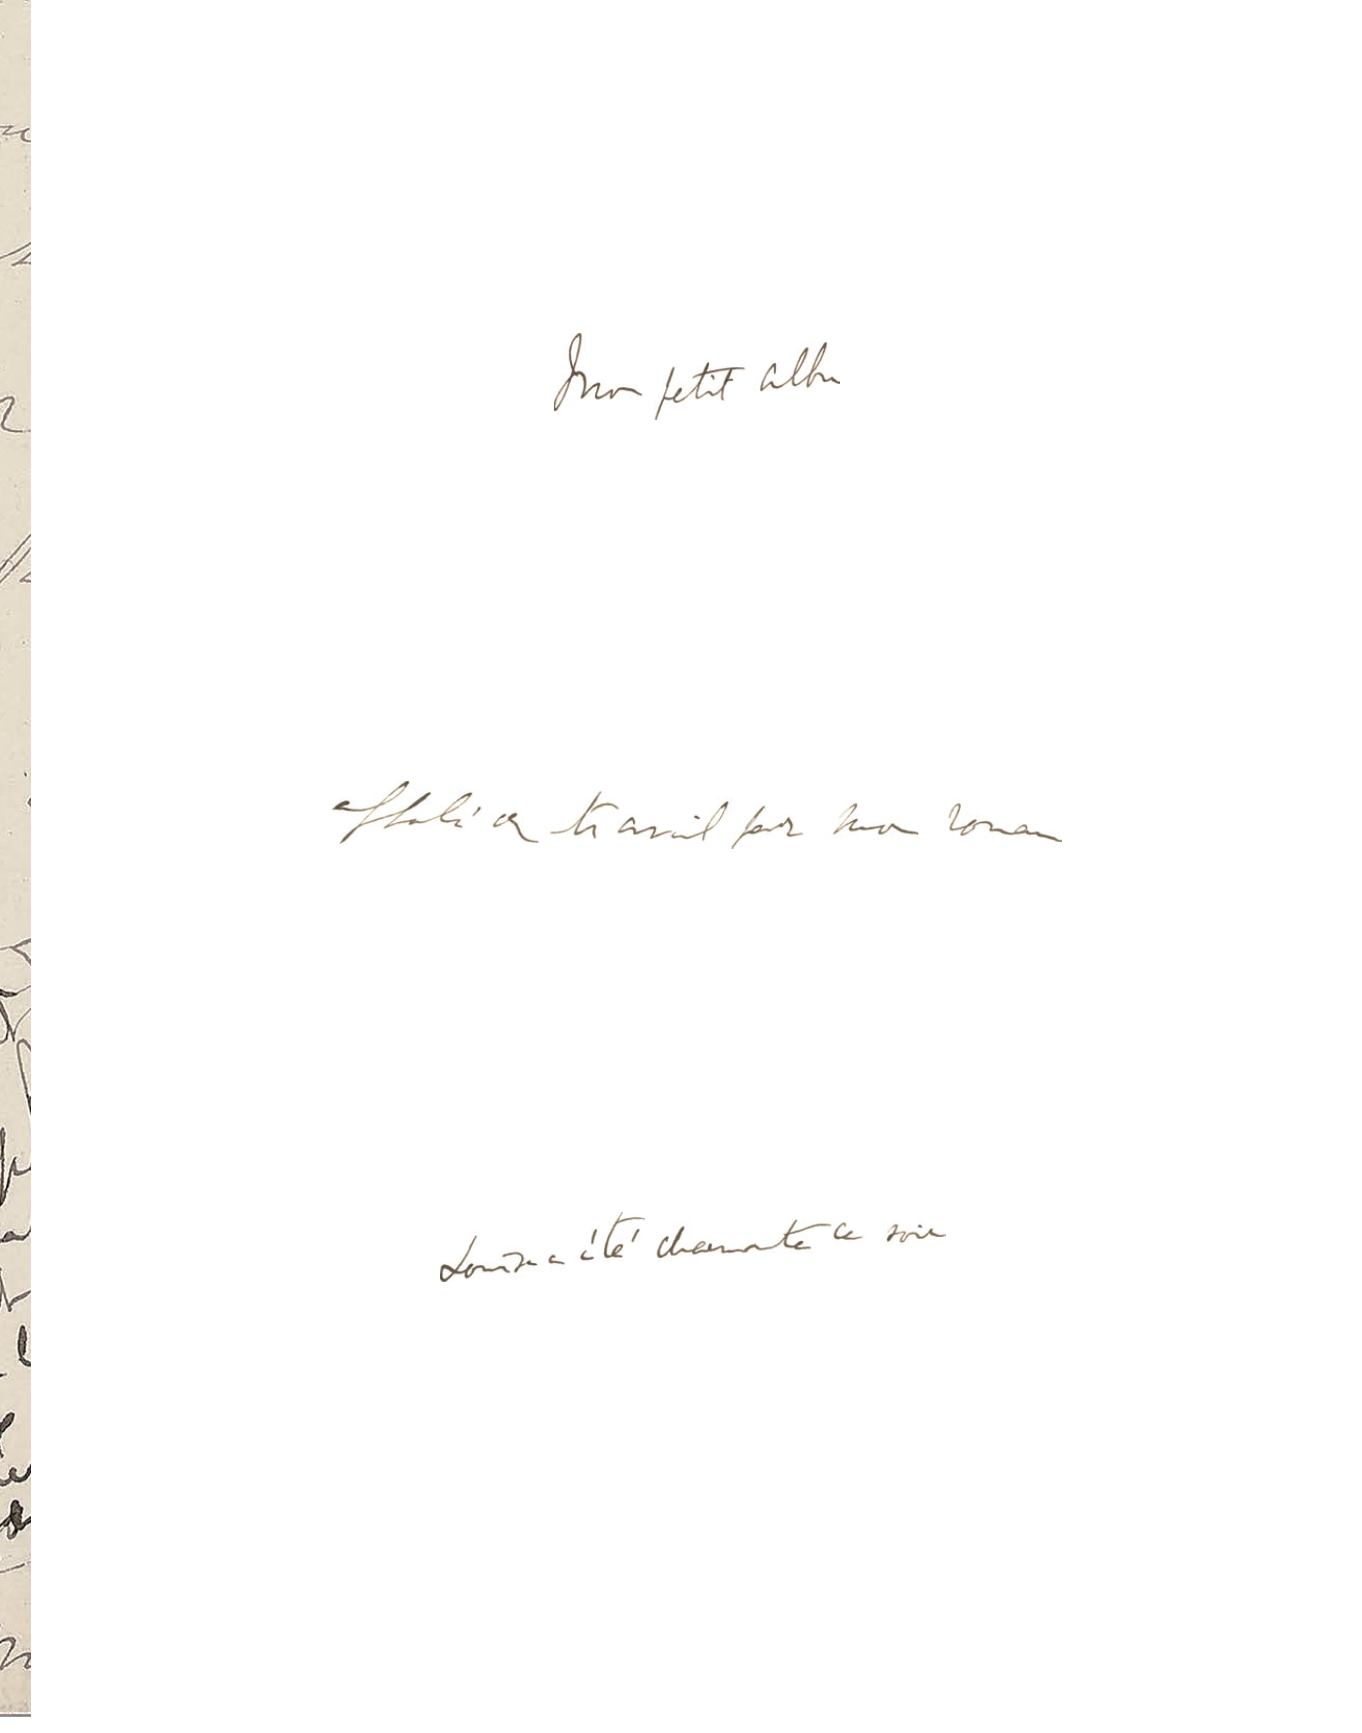 Mon petit album
affolé de travail par mon roman
Louisa a été charmante ce soir